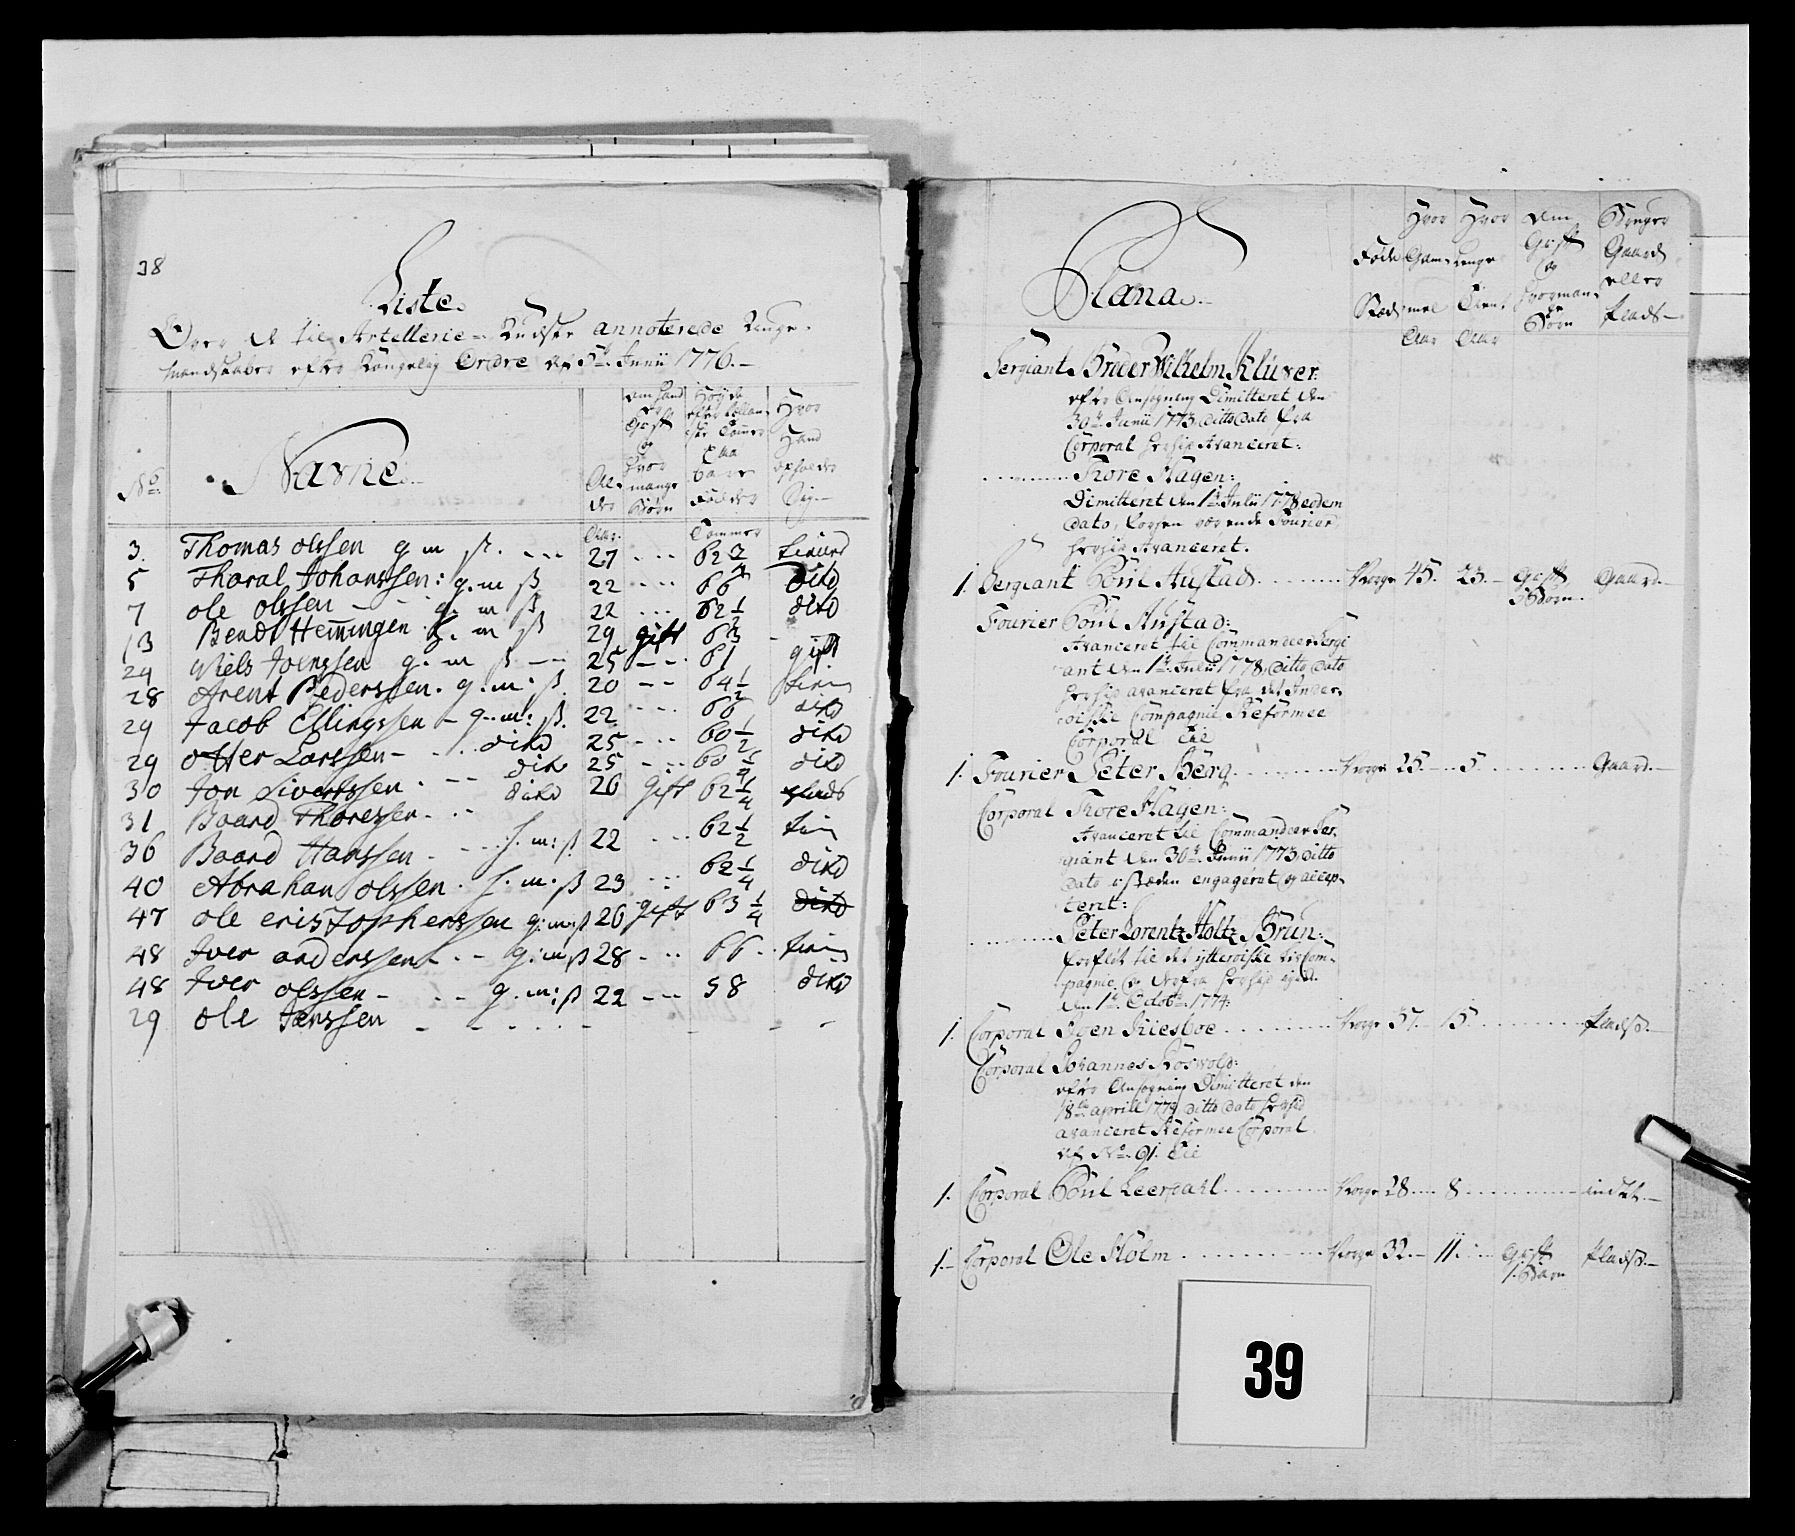 38
Liste
Over de til Artellerie Kudske annoterede Unge
Mandskaber efter Kongelig Ordre af 5te Junii 1776.
No Navne Alder Om Hand er Gift og Hvor mange Børn Høyde efter Tollan Tommer Paa bare Fødder Hvor Hand opholder Sig
Aar. Tommer
3. Thomas olssen g m ß. 27 62
5 Tharal Johanssen: g. m ß 22 66 dito
7 ole olssen g. m ß 22 62 1/2 dito
13 Bendt Hemmingen g. m ß 29 gift 63 gift
24 Niels Joenssen g. m ß 25 61
28 Arent Pederssen. g. m: ß. 20 64 1/2
29 Jacob Ellingssen g: m: ß. 22 66 dito
29 otter Larssen dito 25 60 1/2 dito
30 Jon Sivertssen dito 25 60 dito
31 Baard Thoressen dito 26 Gift 62 1/4
36 Baard Hanssen f. m: ß 22 62 1/2
40 Abraham olssen f. m. ß 23 62 1/4 dito
47 ole cristopherssen g: m: ß 26 gift 63 1/4 dito
48 Iver anderssen g: m ß 28 66
48 Iver olssen g. m: ß 22 58 dito
29 ole Jenssen
Plana
Føde Stæd Hvor Gammel Aar Hvor Lenge Tient Aar Om Gift og Hvormange Børn Bruger Gaard eller Plads
Sergiant Broder Wilhelm Klüver:
efter Ansøgning Dimitteret den
30te Junii 1773, Ditto Dato fra
Corporal hertil Avanceret:
Tore Hagen:
Dimitteret den 1te Julii 1778, eodem
dato, forhen værende Fourier,
hertil Avanceret.
1. Sergiant Poul Austad Norge 45. 23. Gift 3 Børn Gaard
Fourier Poul Austad:
Avanceret til Commandeer Sergi
ant den 1te Julii 1778, Ditto Dato
hertil avanceret fra det Inder
øiske Compagnie Reformee
Corporal
1. Fourier Peter Berg Norge 25. 5. Gaard
Corporal Tore Hagen:
Avanceret til Commandeer Ser
giant den 30te Junii 1773, Ditto
Dato i stæden engageret og accep
teret:
Peter Lorentz Holtz Brun:
forflöt til det ytterøiske Liv Com
pagnie, og derfra hertil igien
den 1te Octobr 1774:
1. Corporal Joen Kiesboe Norge 37. 15. Plads
Corporal Johannes Roswold:
efter Ansøgning Dimitteret den
18te aprill 1779 ditto dato hertil
avanceret Reformee Corporal
af No 91.
1. Corporal Poul Leerdahl Norge 28. 8
1. Corporal Ole Holm Norge 32. 11. Gift 1. Barn Plads
39